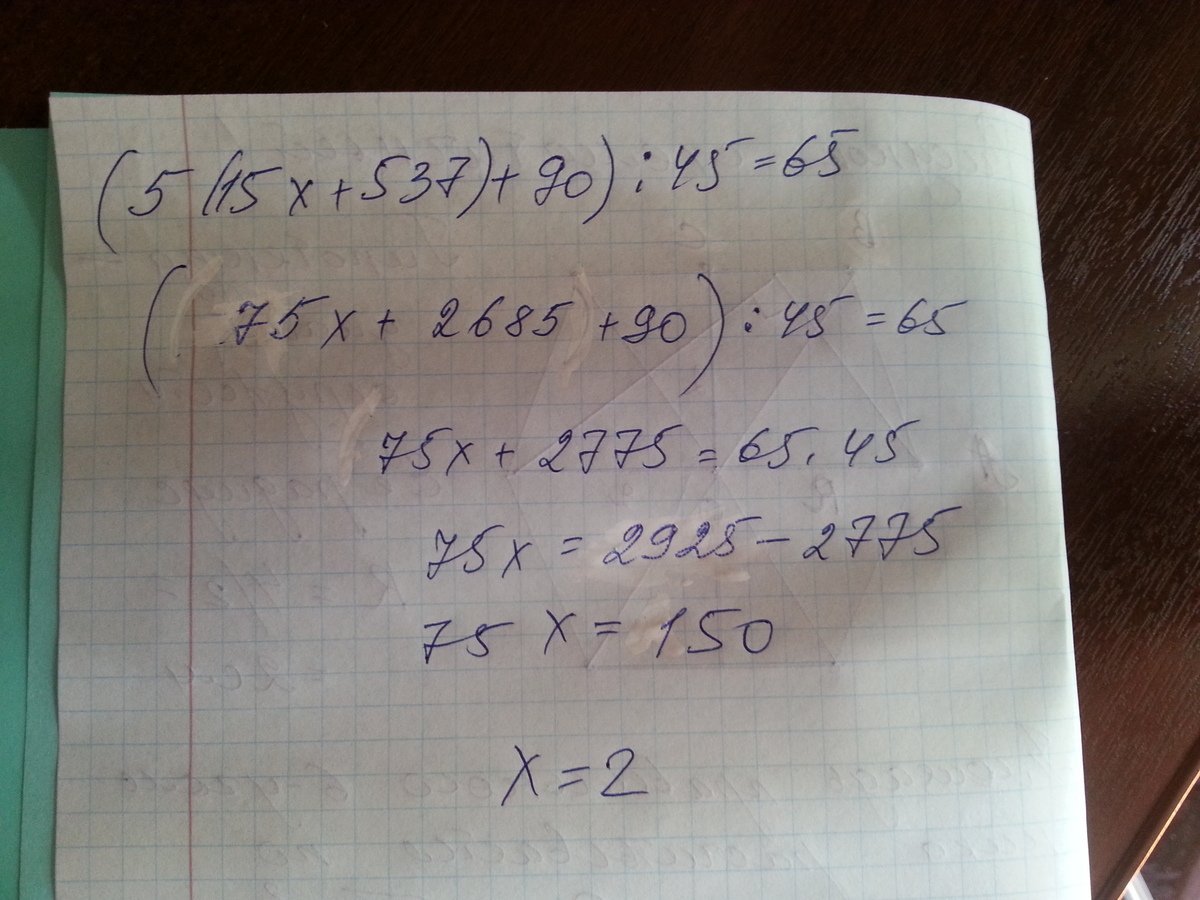 (5(15x+537)+90):45=65
(75x+2685+90):45=65
75x+2775=65·45
75x=2925-2775
75x=150
x=2